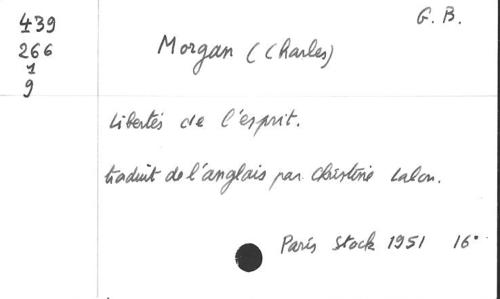 439
266
1
9
G. B.
Morgan (Charles)
Libertés de l'esprit.
traduit de l'anglais par Christine Lalou.
Paris Stock 1951 16°